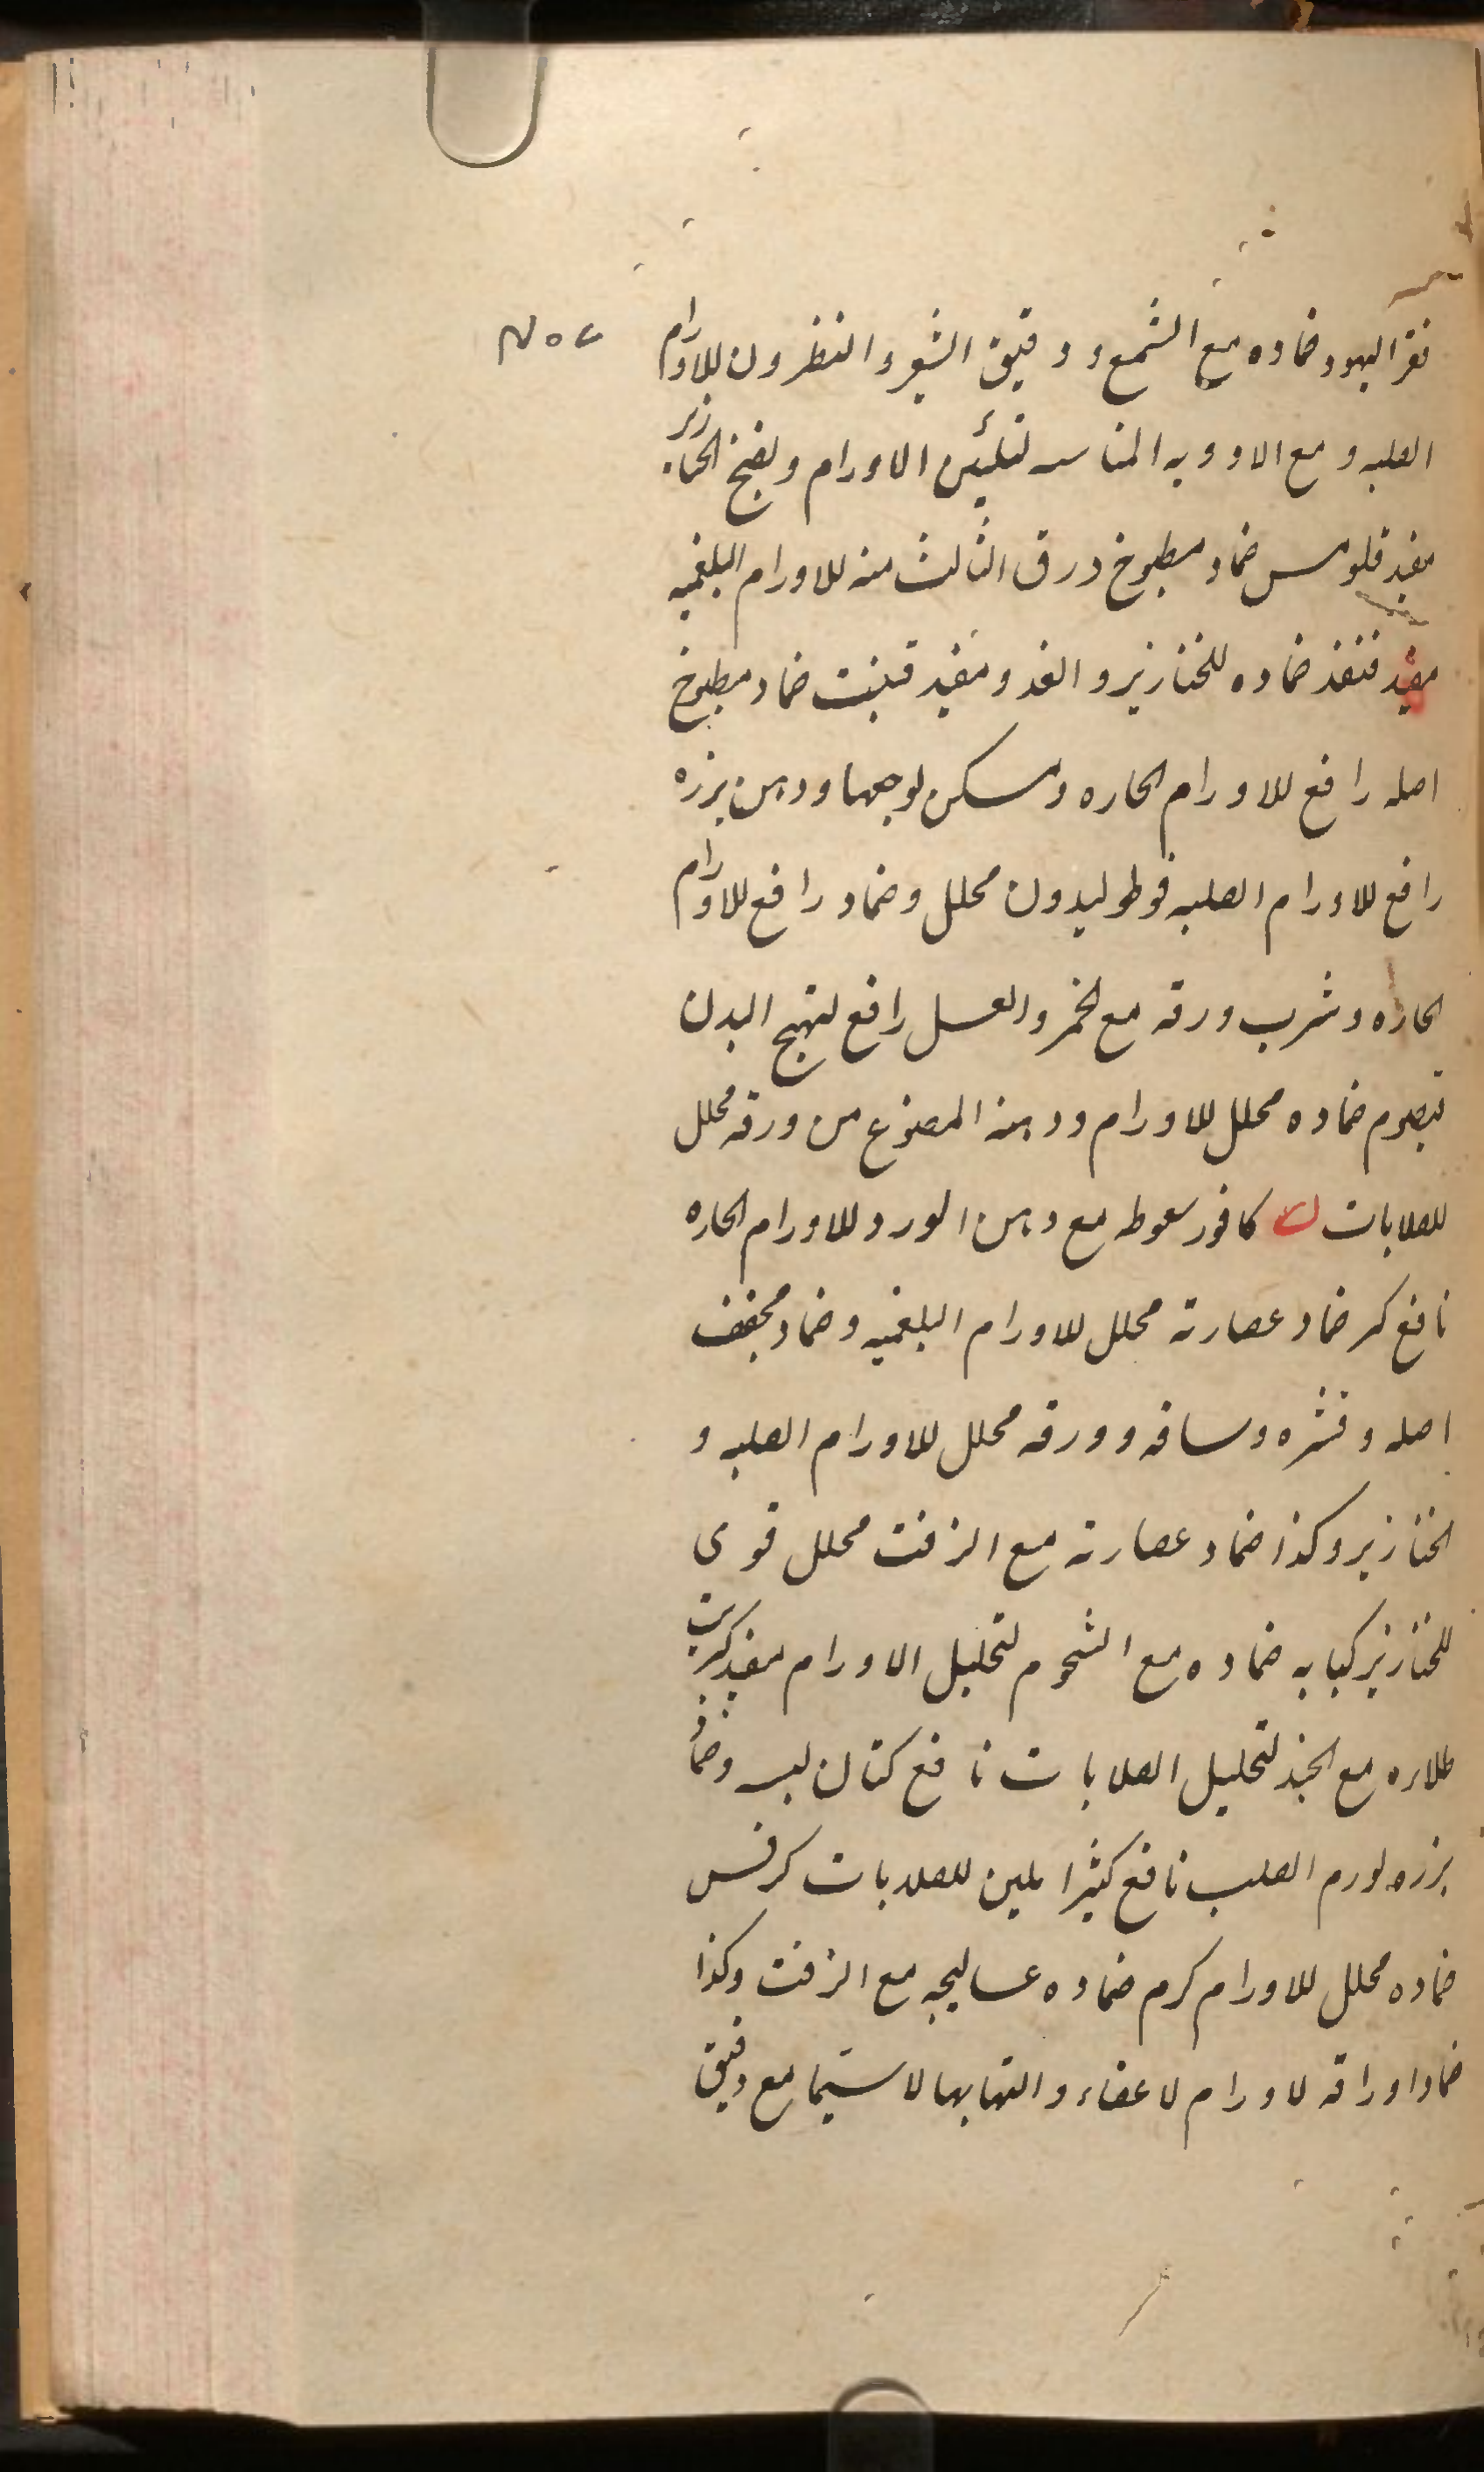 قفر اليهود ضماده مع الشمع و دقيق الشعير و النطرون للاورام
الصلبه و مع الادويه المناسبه لتليين الاورام و لفتح الخنازير
مفيد قلومس ضماد مطبوخ درق الثالث منه للاورام البلغميه
مفيد قنفذ ضماده للخنازير و الغدد مفيد قنبت ضماد مطبوخ
اصله رافع للاورام الحاره و مسكن لوجعها و دهن بزره
رافع للاورام الصلبه قوطوليدون محلل و ضماد رافع للاورام
الحاره و شرب ورقه مع الخمر و العسل رافع لتهيج البدن
قيصوم ضماده محلل للاورام و دهنه المصنوع من ورقه محلل
للصلابات ك كافور سعوط مع دهن الورد للاورام الحاره
نافع كبر ضماد عصارته محلل للاورام البلغميه و ضماد مجفف
اصله و قشره و ساقه و ورقه محلل للاورام الصلبه و
الخنازير و كذا ضماد عصارته مع الزفت محلل قوى
للخنازير كبابه ضماده مع الشحوم لتحليل الاورام مفيد كبريت
طلاءه مع الخبز لتحليل الصلابات نافع كتان لبس و ضماد
بزره لورم الصلب نافع كثيرا ملين للصلابات كرفس
ضماده محلل للاورام كرم ضماده عساليجه مع الزفت و كذا
ضماد اوراقه لاورام لاعضاء و التهابها لاسيما مع دقيق